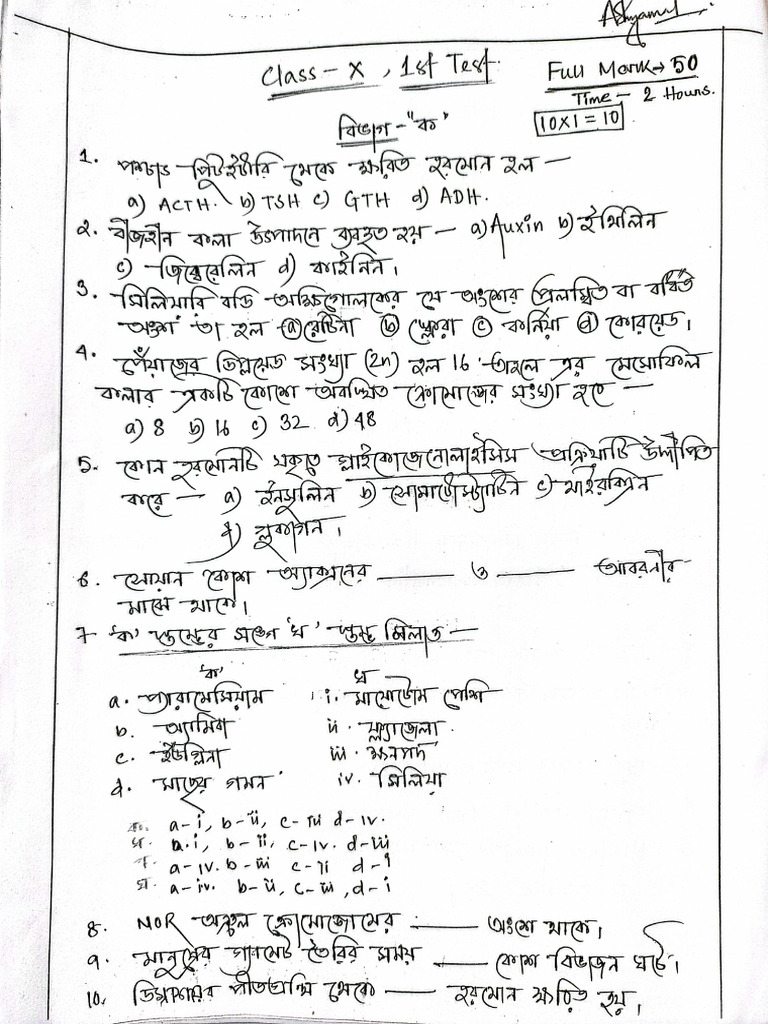 Class - X , 1st Test.
Full Mark → 50
Time - 2 Hours.
বিভাগ - "ক"
10X1 = 10
1. পশ্চাৎ পিটুইটারি থেকে ক্ষরিত হরমোন হল —
a) ACTH. b) TSH c) GTH d) ADH.
2. বীজহীন ফল উৎপাদনে ব্যবহৃত হয় - a) Auxin b) ইথিলিন
c) জিব্বেরেলিন d) কাইনিন।
3. সিলিয়ারি বডি অক্ষিগোলকের যে অংশের প্রলম্বিত বা বর্ধিত
অংশ তা হল ⓐ রেটিনা ⓑ স্ক্লেরা ⓒ কর্নিয়া ⓓ কোরয়েড।
4. পেঁয়াজের ডিপ্লয়েড সংখ্যা (2n) হল 16 তাহলে এর মেসোফিল
কলার একটি কোশে অবস্থিত ক্রোমোজোমের সংখ্যা হবে —
a) 8 b) 16 c) 32 d) 48
5. কোন হরমোনটি যকৃতে গ্লাইকোজেনোলাইসিস প্রক্রিয়াটি উদ্দীপিত
করে — a) ইনসুলিন b) সোমাটোস্ট্যাটিন c) থাইরক্সিন
d) গ্লুকাগন।
6. সোয়ান কোশ অ্যাক্সনের ______ ও ______ আবরনীর
মাঝে থাকে।
7 'ক' স্তম্ভের সঙ্গে 'খ' স্তম্ভ মিলাও —
'ক' খ
a. প্যারামেসিয়াম i. মায়োটোম পেশি
b. অ্যামিবা ii. ফ্ল্যাজেলা
c. ইউগ্লিনা iii. ক্ষনপদ
d. মাছের গমন iv. সিলিয়া
ক. a-i, b-ii, c-iii d-iv.
খ. a.i, b-ii, c-iv. d-iii
গ. a-iv. b-iii c-ii d-i
ঘ. a-iv. b-ii, c-iii, d-i
8. NOR অঞ্চল ক্রোমোজোমের ______ অংশে থাকে।
9. মানুষের গ্যামেট তৈরির সময় ______ কোশ বিভাজন ঘটে।
10. ডিম্বাশয়ের পীতগ্রন্থি থেকে ______ হরমোন ক্ষরিত হয়।